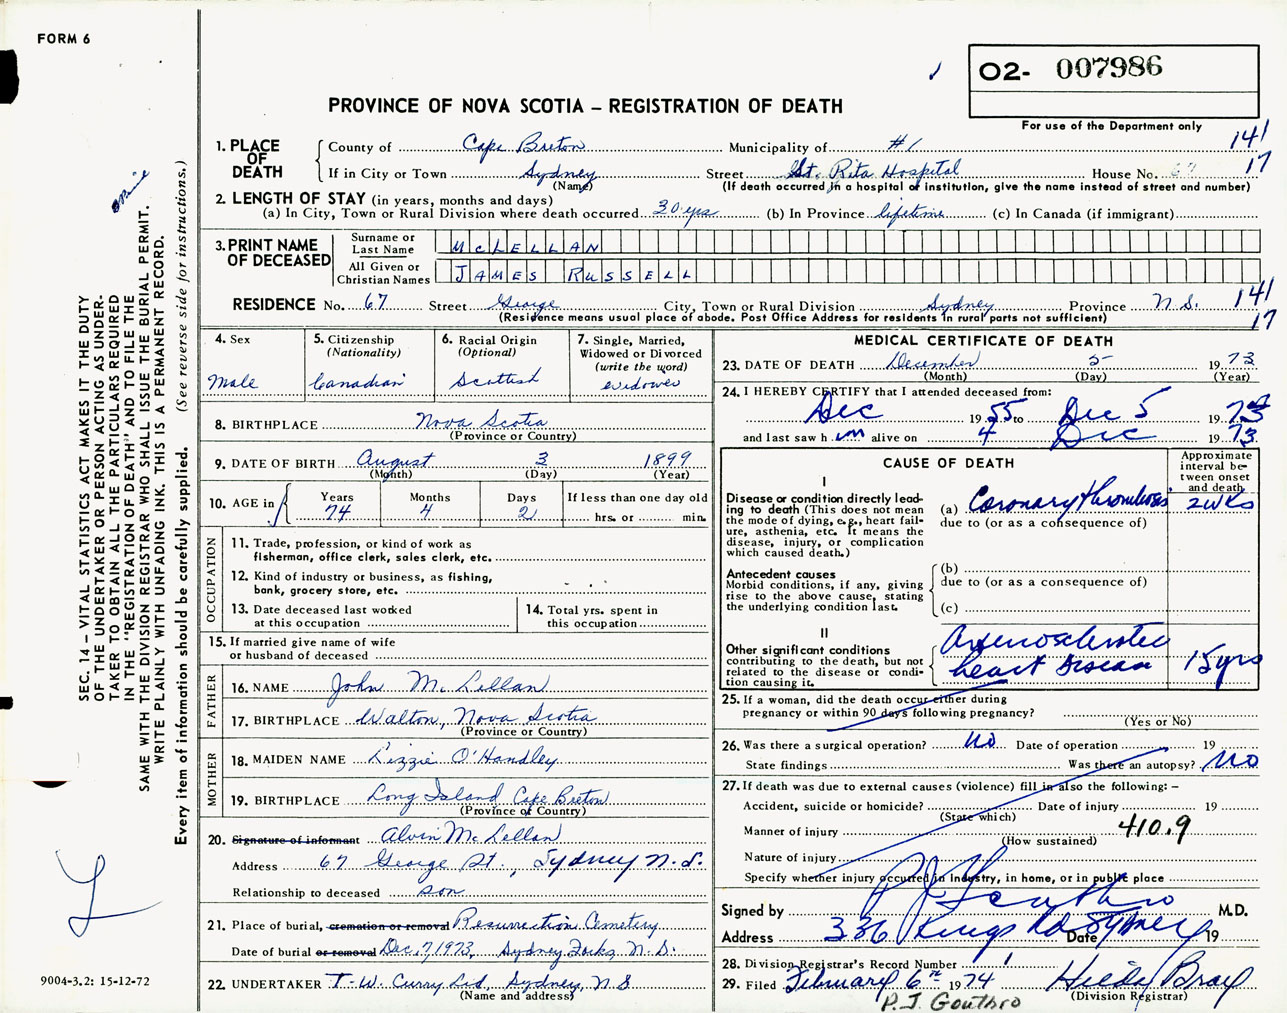 FORM 6
O2- 007986
For use of the Department only
PROVINCE OF NOVA SCOTIA – REGISTRATION OF DEATH
1. PLACE OF DEATH
County of Cape Breton Municipality of #1 141
If in City or Town Sydney Street St. Rita Hospital House No. 67 17
(Name) (If death occurred in a hospital or institution, give the name instead of street and number)
2. LENGTH OF STAY (in years, months and days)
(a) In City, Town or Rural Division where death occurred 30 yrs (b) In Province lifetime (c) In Canada (if immigrant)
3. PRINT NAME OF DECEASED
Surname or Last Name McLELLAN
All Given or Christian Names JAMES RUSSELL
RESIDENCE No. 67 Street George City, Town or Rural Division Sydney Province N.S. 141
(Residence means usual place of abode. Post Office Address for residents in rural parts not sufficient) 17
4. Sex
Male
5. Citizenship (Nationality)
Canadian
6. Racial Origin (Optional)
Scottish
7. Single, Married, Widowed or Divorced (write the word)
widower
8. BIRTHPLACE Nova Scotia
(Province or Country)
9. DATE OF BIRTH August 3 1899
(Month) (Day) (Year)
10. AGE in Years Months Days If less than one day old
74 4 2 hrs. or min.
OCCUPATION
11. Trade, profession, or kind of work as fisherman, office clerk, sales clerk, etc.
12. Kind of industry or business, as fishing, bank, grocery store, etc.
13. Date deceased last worked at this occupation
14. Total yrs. spent in this occupation
15. If married give name of wife or husband of deceased
FATHER
16. NAME John McLellan
17. BIRTHPLACE Walton, Nova Scotia
(Province or Country)
MOTHER
18. MAIDEN NAME Lizzie O'Handley
19. BIRTHPLACE Long Island Cape Breton
(Province or Country)
20. Signature of informant Alvin McLellan
Address 67 George St., Sydney N.S.
Relationship to deceased son
21. Place of burial, cremation or removal Resurrection Cemetery
Date of burial or removal Dec. 7, 1973, Sydney Forks, N.S.
22. UNDERTAKER T.W. Curry Ltd, Sydney, N S
(Name and address)
MEDICAL CERTIFICATE OF DEATH
23. DATE OF DEATH December 5 1973
(Month) (Day) (Year)
24. I HEREBY CERTIFY that I attended deceased from:
Dec 1955 to Dec 5 1973
and last saw h im alive on 4 Dec 1973
CAUSE OF DEATH
Approximate interval between onset and death
I
Disease or condition directly leading to death (This does not mean the mode of dying, e.g., heart failure, asthenia, etc. It means the disease, injury, or complication which caused death.)
(a) Coronary thrombosis 2 wks
due to (or as a consequence of)
Antecedent causes
Morbid conditions, if any, giving rise to the above cause, stating the underlying condition last.
(b)
due to (or as a consequence of)
(c)
II
Other significant conditions contributing to the death, but not related to the disease or condition causing it.
Arteriosclerotic
heart disease 15 yrs
25. If a woman, did the death occur either during pregnancy or within 90 days following pregnancy?
(Yes or No)
26. Was there a surgical operation? No Date of operation 19
State findings Was there an autopsy? No
27. If death was due to external causes (violence) fill in also the following: –
Accident, suicide or homicide? Date of injury 19
(State which)
Manner of injury 410.9
(How sustained)
Nature of injury
Specify whether injury occurred in Industry, in home, or in public place
Signed by P J Gouthro M.D.
Address 336 Kings Rd Sydney Date 19
28. Division Registrar's Record Number 1
29. Filed February 6th 1974 Hilda Bray
(Division Registrar)
P.J. Gouthro
SEC. 14 – VITAL STATISTICS ACT MAKES IT THE DUTY
OF THE UNDERTAKER OR PERSON ACTING AS UNDER-
TAKER TO OBTAIN ALL THE PARTICULARS REQUIRED
IN THE "REGISTRATION OF DEATH" AND TO FILE THE
SAME WITH THE DIVISION REGISTRAR WHO SHALL ISSUE THE BURIAL PERMIT.
WRITE PLAINLY WITH UNFADING INK. THIS IS A PERMANENT RECORD.
Every item of information should be carefully supplied. (See reverse side for instructions.)
9004-3.2: 15-12-72